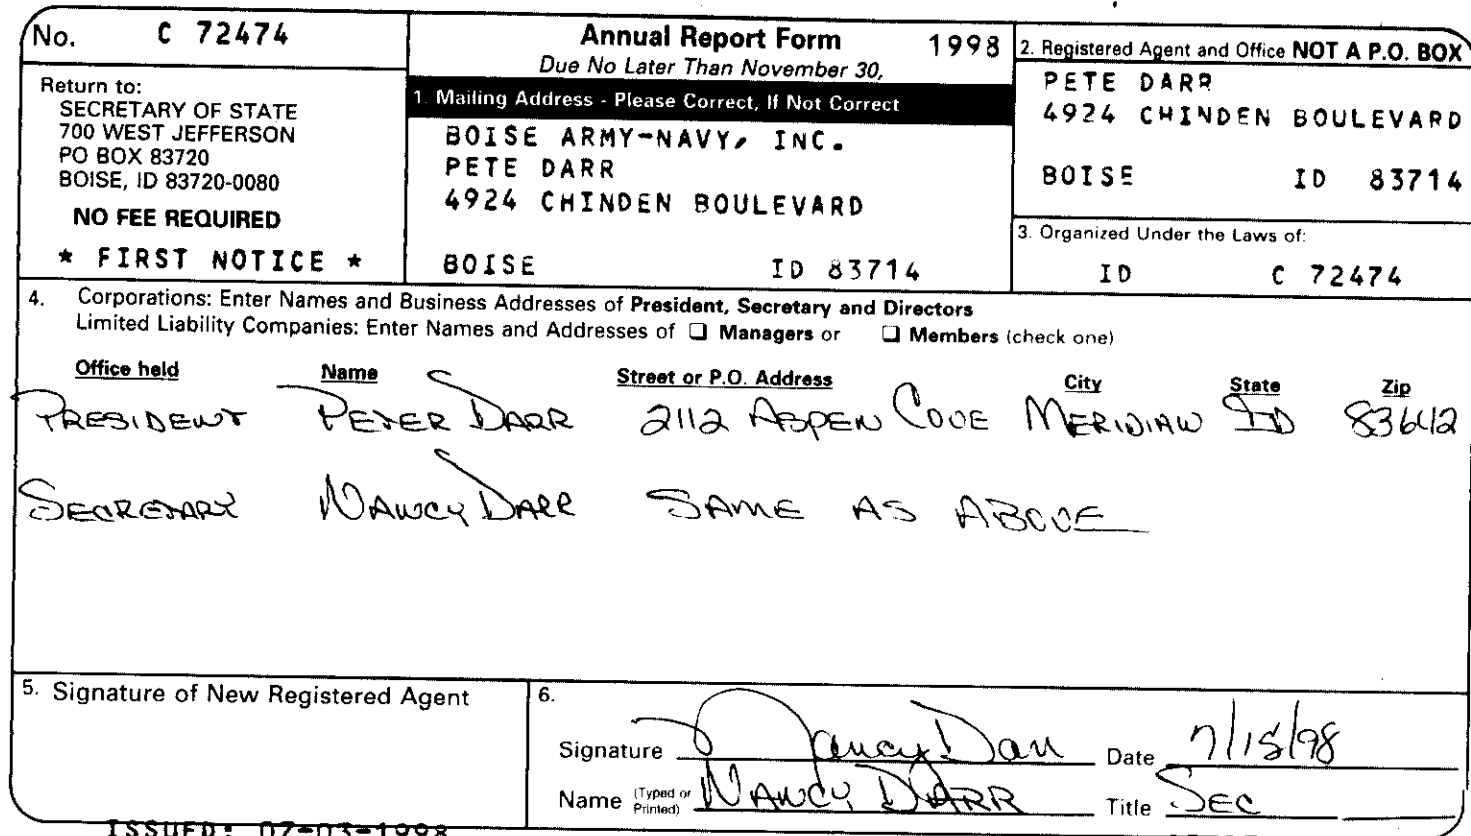 No. C 72474
Return to:
SECRETARY OF STATE
700 WEST JEFFERSON
PO BOX 83720
BOISE, ID 83720-0080
NO FEE REQUIRED
* FIRST NOTICE *
Annual Report Form 1998
Due No Later Than November 30,
1. Mailing Address - Please Correct, If Not Correct
BOISE ARMY-NAVY, INC.
PETE DARR
4924 CHINDEN BOULEVARD
BOISE ID 83714
2. Registered Agent and Office NOT A P.O. BOX
PETE DARR
4924 CHINDEN BOULEVARD
BOISE ID 83714
3. Organized Under the Laws of:
ID C 72474
4. Corporations: Enter Names and Business Addresses of President, Secretary and Directors
Limited Liability Companies: Enter Names and Addresses of ❑ Managers or ❑ Members (check one)
Office held Name Street or P.O. Address City State Zip
PRESIDENT PETER DARR 2112 ASPEN COVE MERIDIAN ID 83642
SECRETARY NANCY DARR SAME AS ABOVE
5. Signature of New Registered Agent
6.
Signature Nancy Darr Date 7/15/98
Name (Typed or Printed) NANCY DARR Title SEC
ISSUED: 07-03-1998